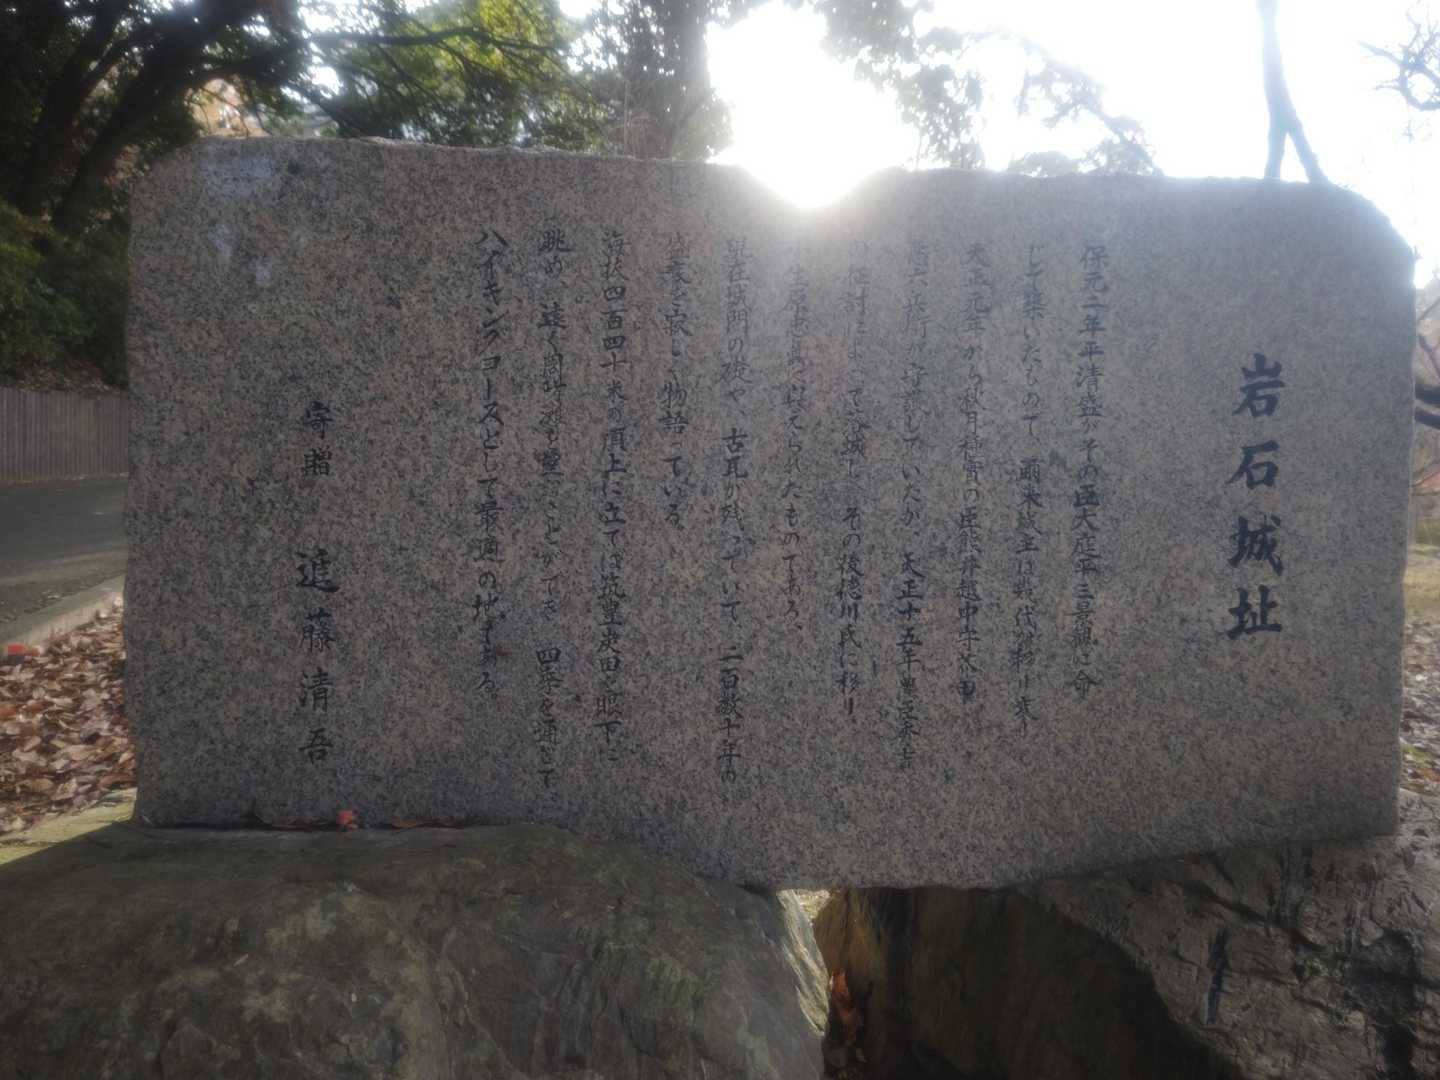 岩石城址
保元二年平清盛がその臣大庭平三景親に命
じて築いたもので、爾来城主は幾代か移り変り
天正元年から秋月種實の臣熊井越中守
が守護していたが、天正十五年豊臣秀吉
の征討によって落城し、その後徳川氏に移り
えられたものである、
現在城門の礎や古瓦が残っていて、二百数十年の
盛衰を寂しく物語っている。
海抜四百四十米の頂上に立てば筑豊炭田を眼下に
眺め、遠く周防灘も望むことができ、四季を通じて
ハイキングコースとして最適の地である。
寄贈 進藤清吾